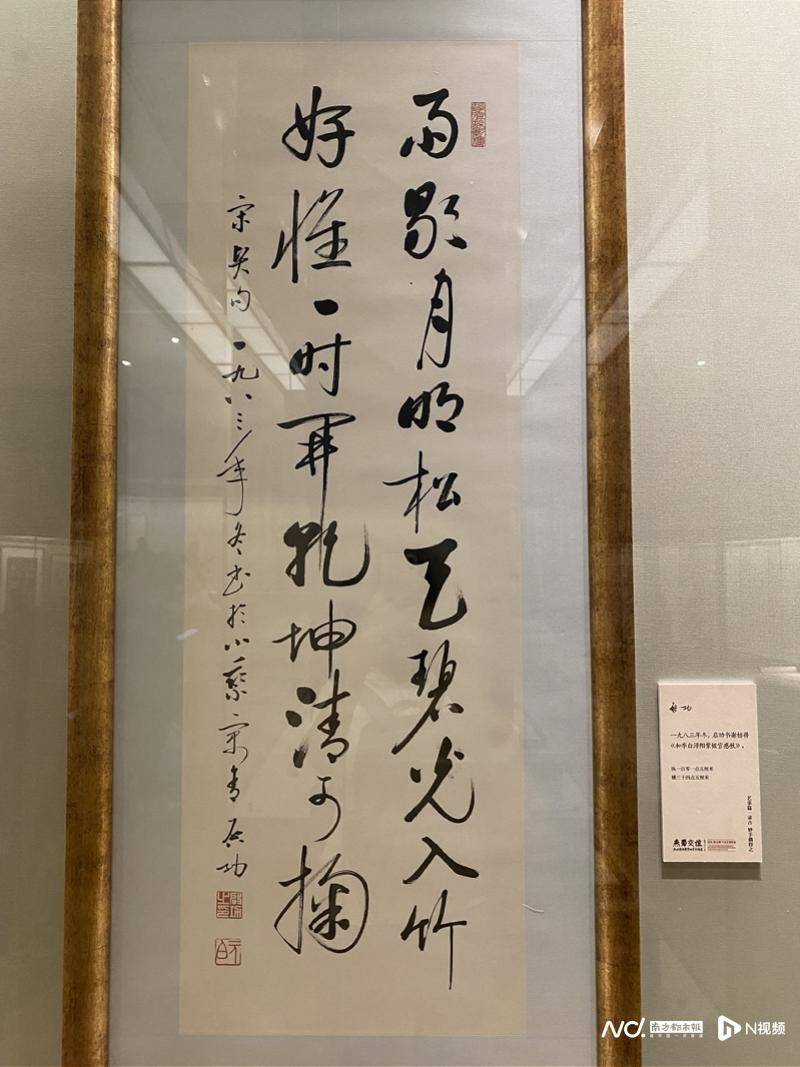 雨歇月明松天碧光入竹
好懷一时开乾坤清可掬
宋賢句一九八三年冬书於小乘寓舍启功
启功
一九八三年冬，启功书谢枋得
《和李白浔阳紫极宫感秋》。
纵一百零一点五厘米
横三十四点五厘米
南方都市报
N视频